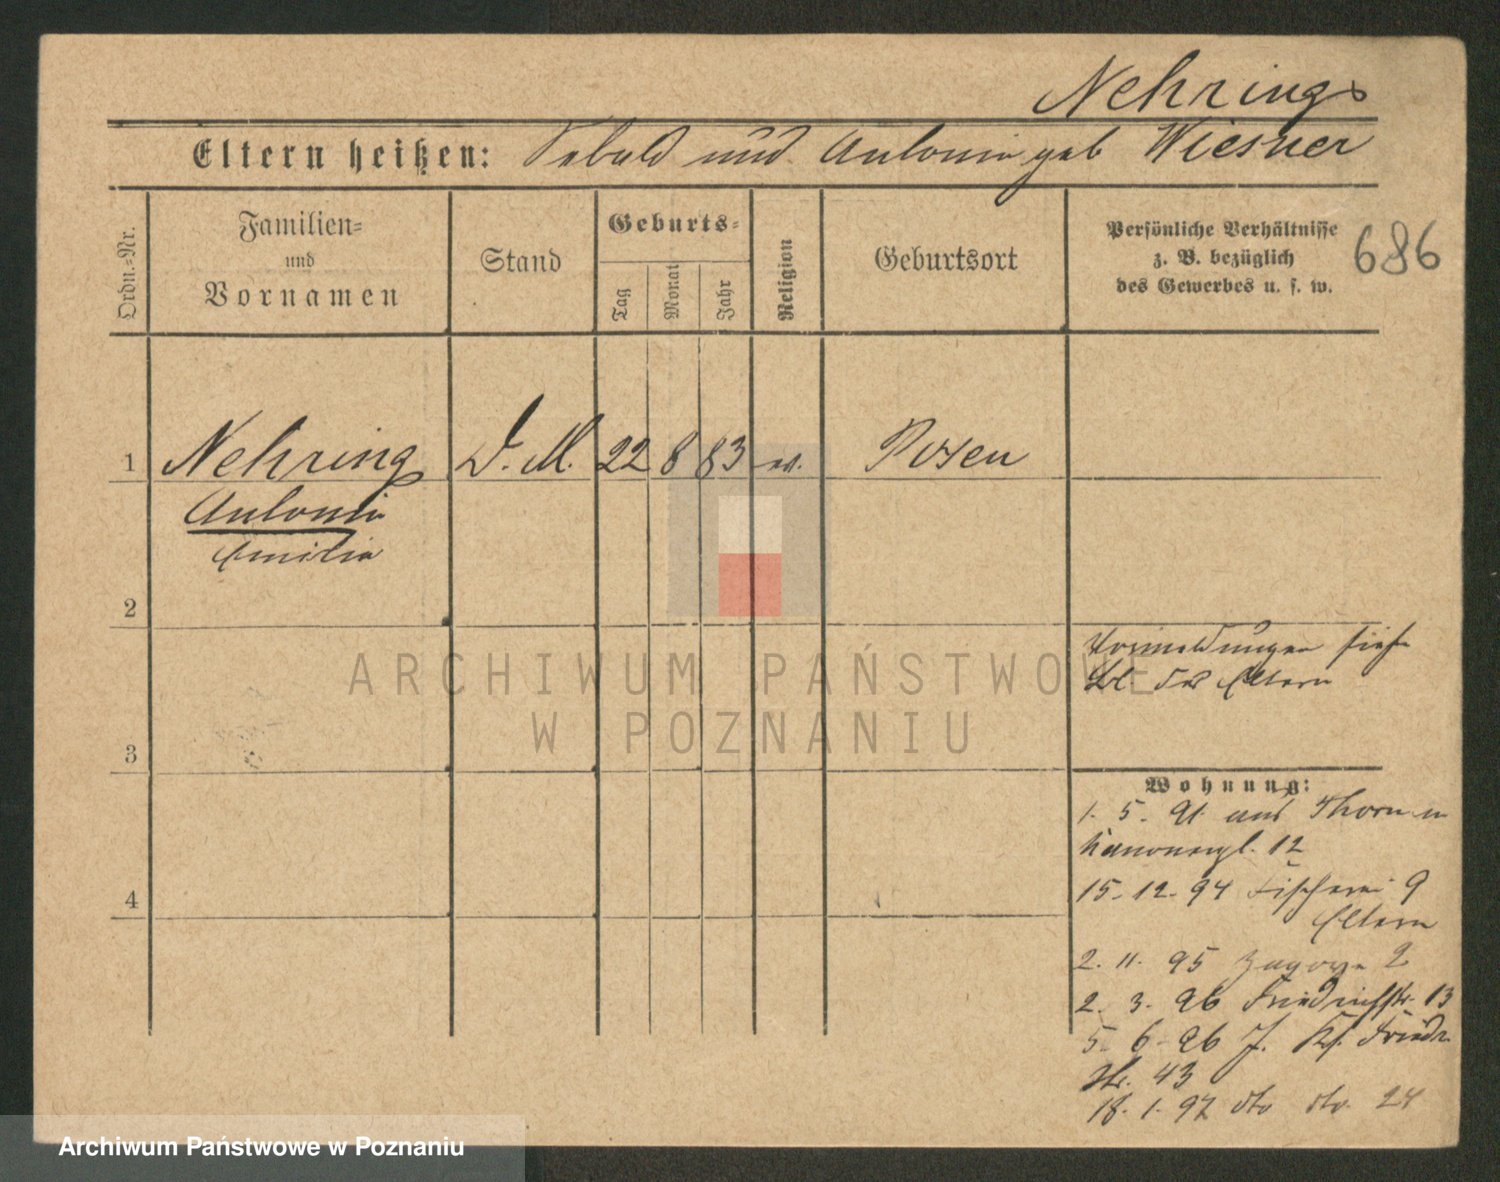 Nehring
Eltern heißen: Sebald und Antonie geb Wiesner
Ordn.-Nr.
Familien-
und
Vornamen
Stand
Geburts-
Tag
Monat
Jahr
Religion
Geburtsort
Persönliche Verhältnisse
z. B. bezüglich
des Gewerbes u. s. w.
686
1 Nehring D. M. 22 8 83 Posen
Antonie
Emilie
2
Vormeldungen siehe
Bl der Eltern
3
Wohnung:
1. 5. 91. aus Thorn n
Kanonenpl. 12
15. 12. 94 Fischerei 9
Eltern
4
2. 11. 95 Zagorze 2
2. 3. 96 Friedrichstr. 13
5. 6. 96 J. Friedr.
Str. 43
18. 1. 97 dto dto. 24
ARCHIWUM PAŃSTWOWE
W POZNANIU
Archiwum Państwowe w Poznaniu